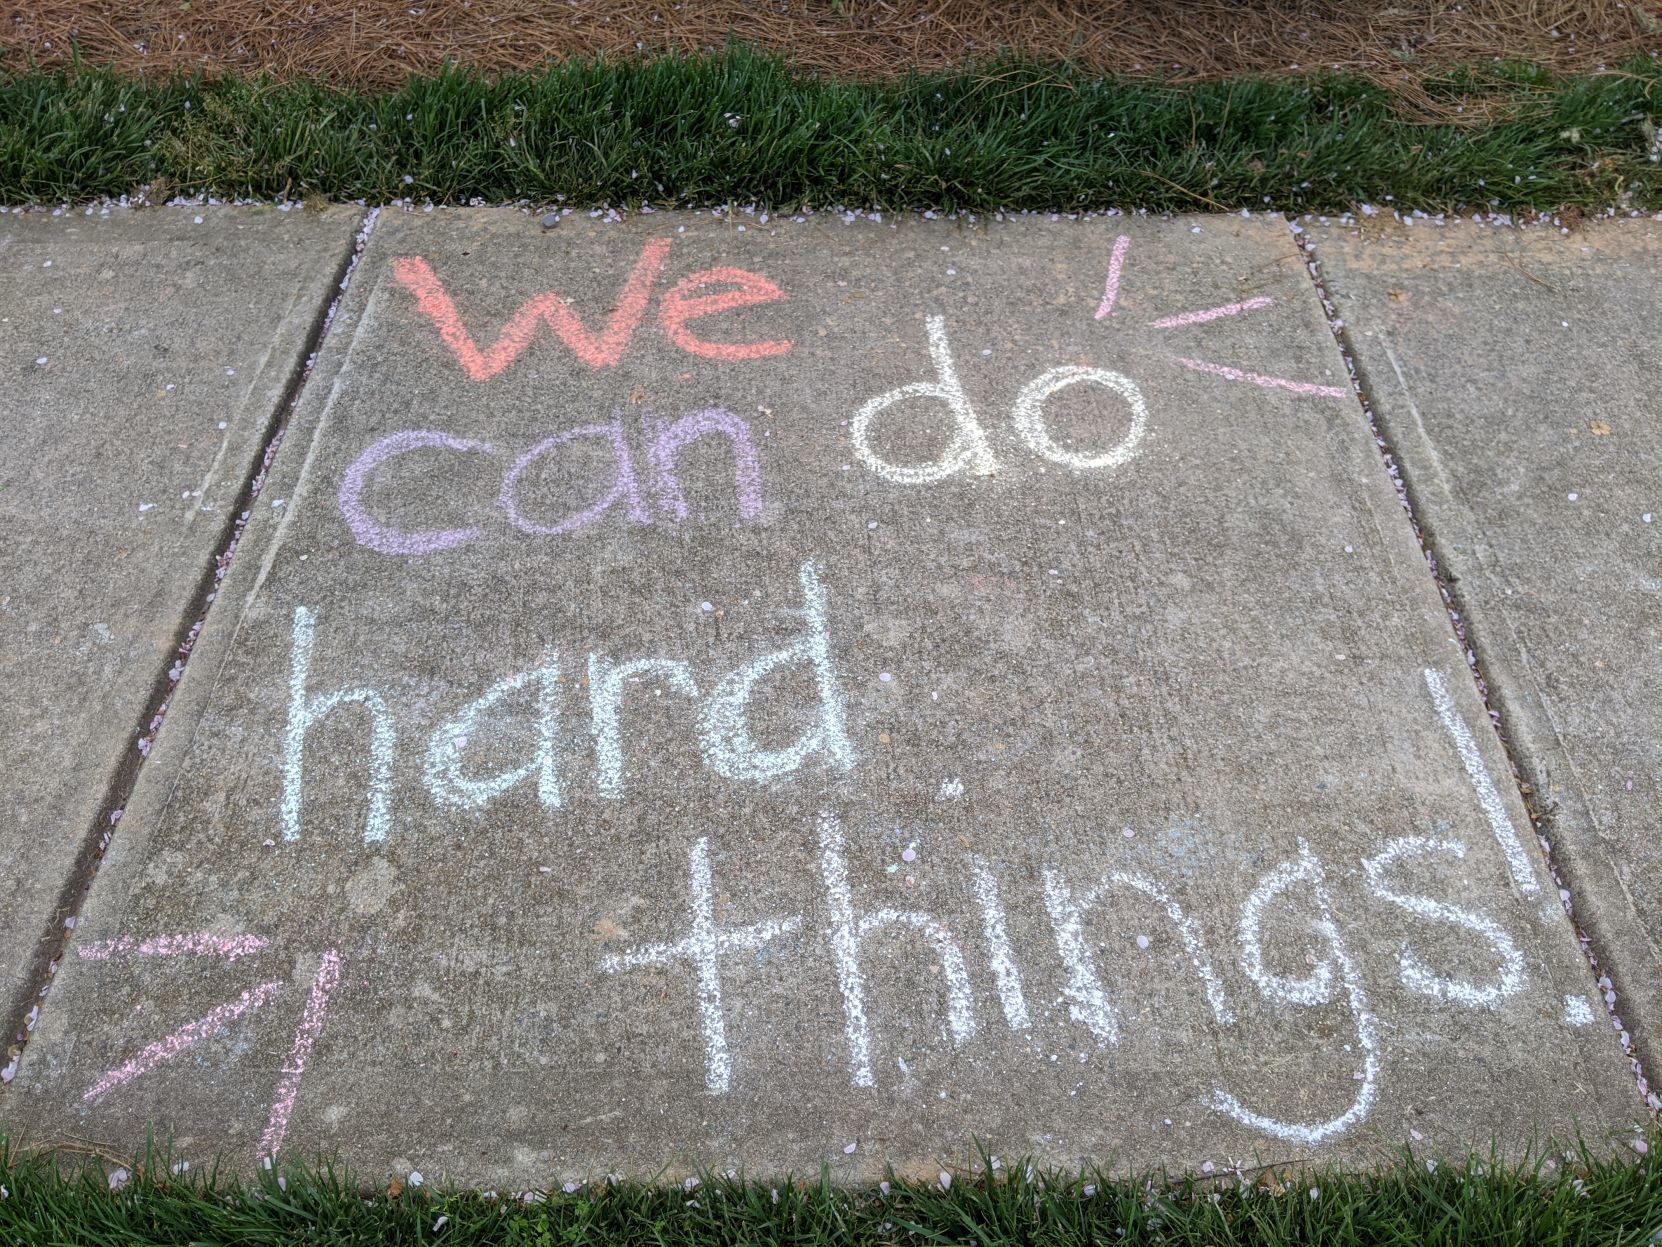 We
can do
hard
things!